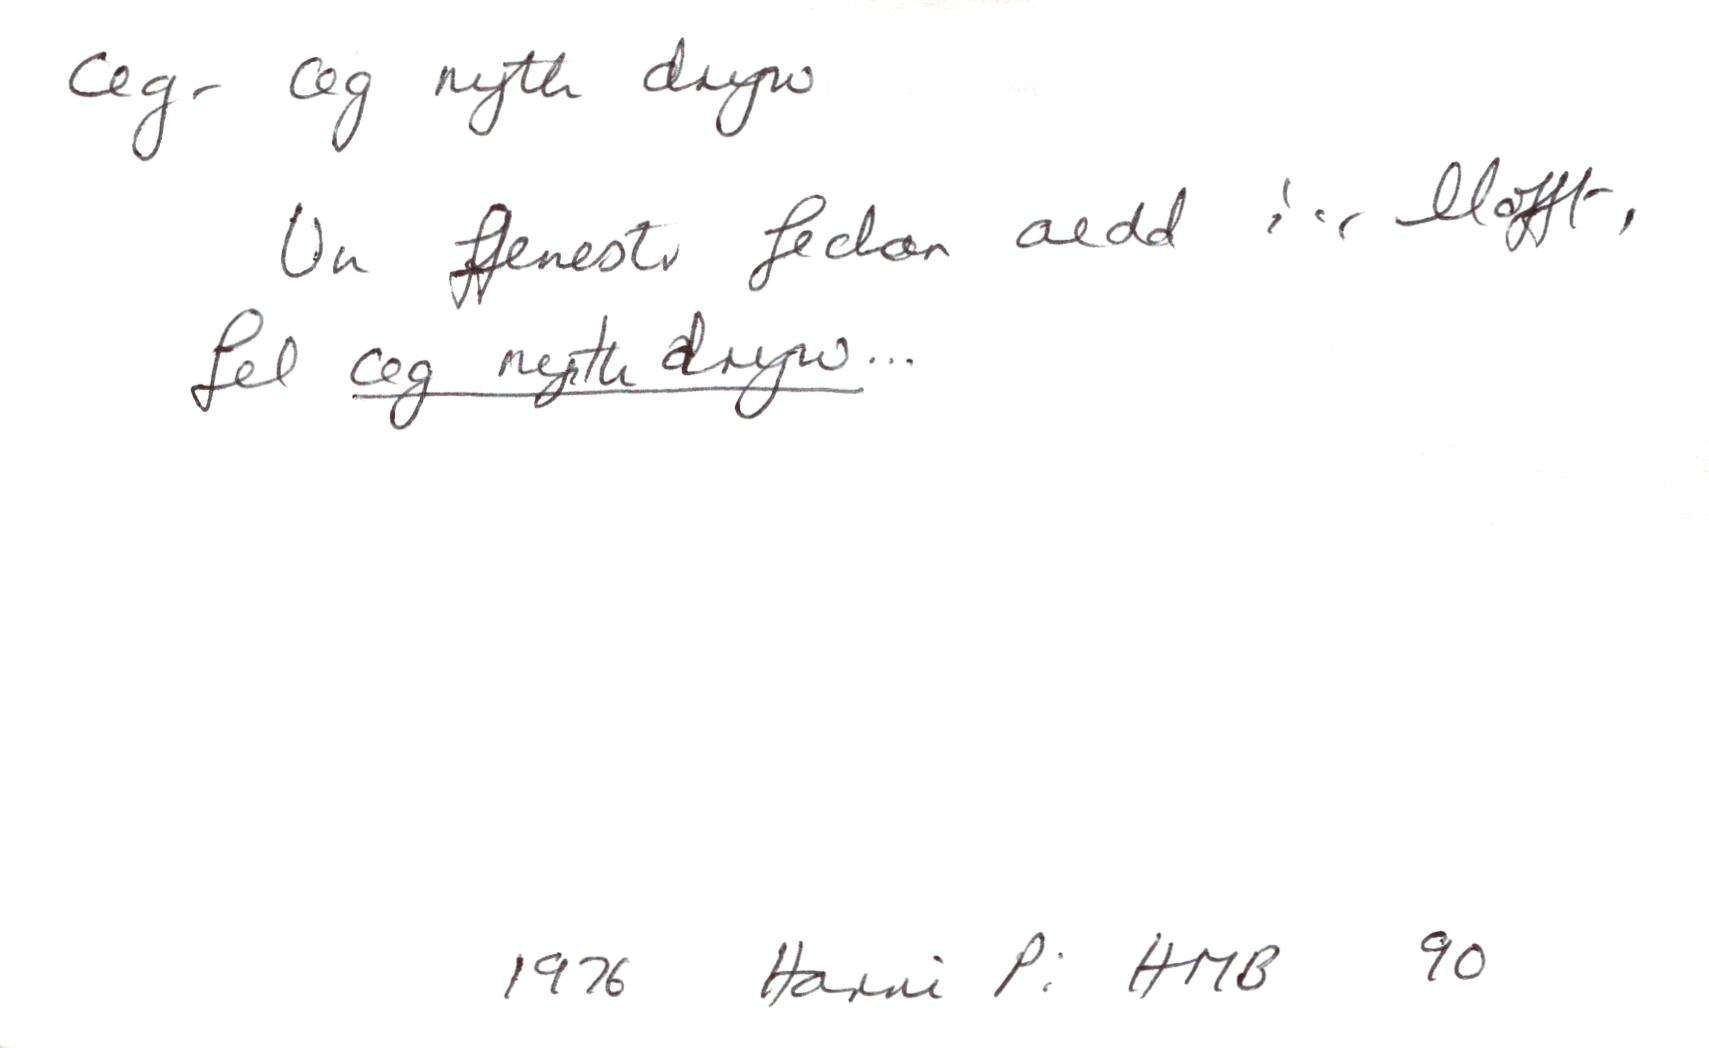 ceg - ceg nyth dryw
Un ffenestr fechan oedd i'r llofft,
fel ceg nyth dryw...
1976 Harri P: HMB 90